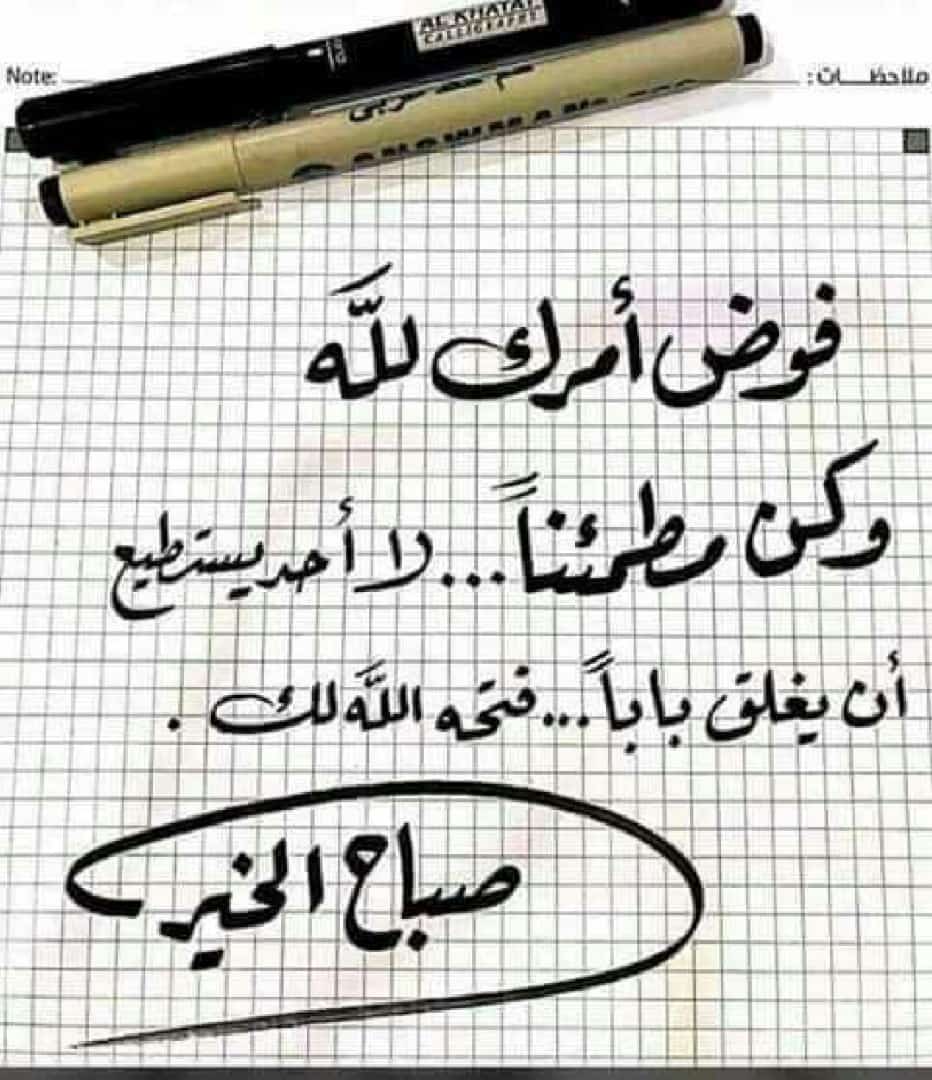 AL KHATAT
CALLIGRAPHY
Note:
ملاحظـــات :
فوض أمرك للَّه
وكن مطمئناً...لا أحد يستطيع
أن يغلق باباً...فتحه اللَّه لك .
صباح الخير